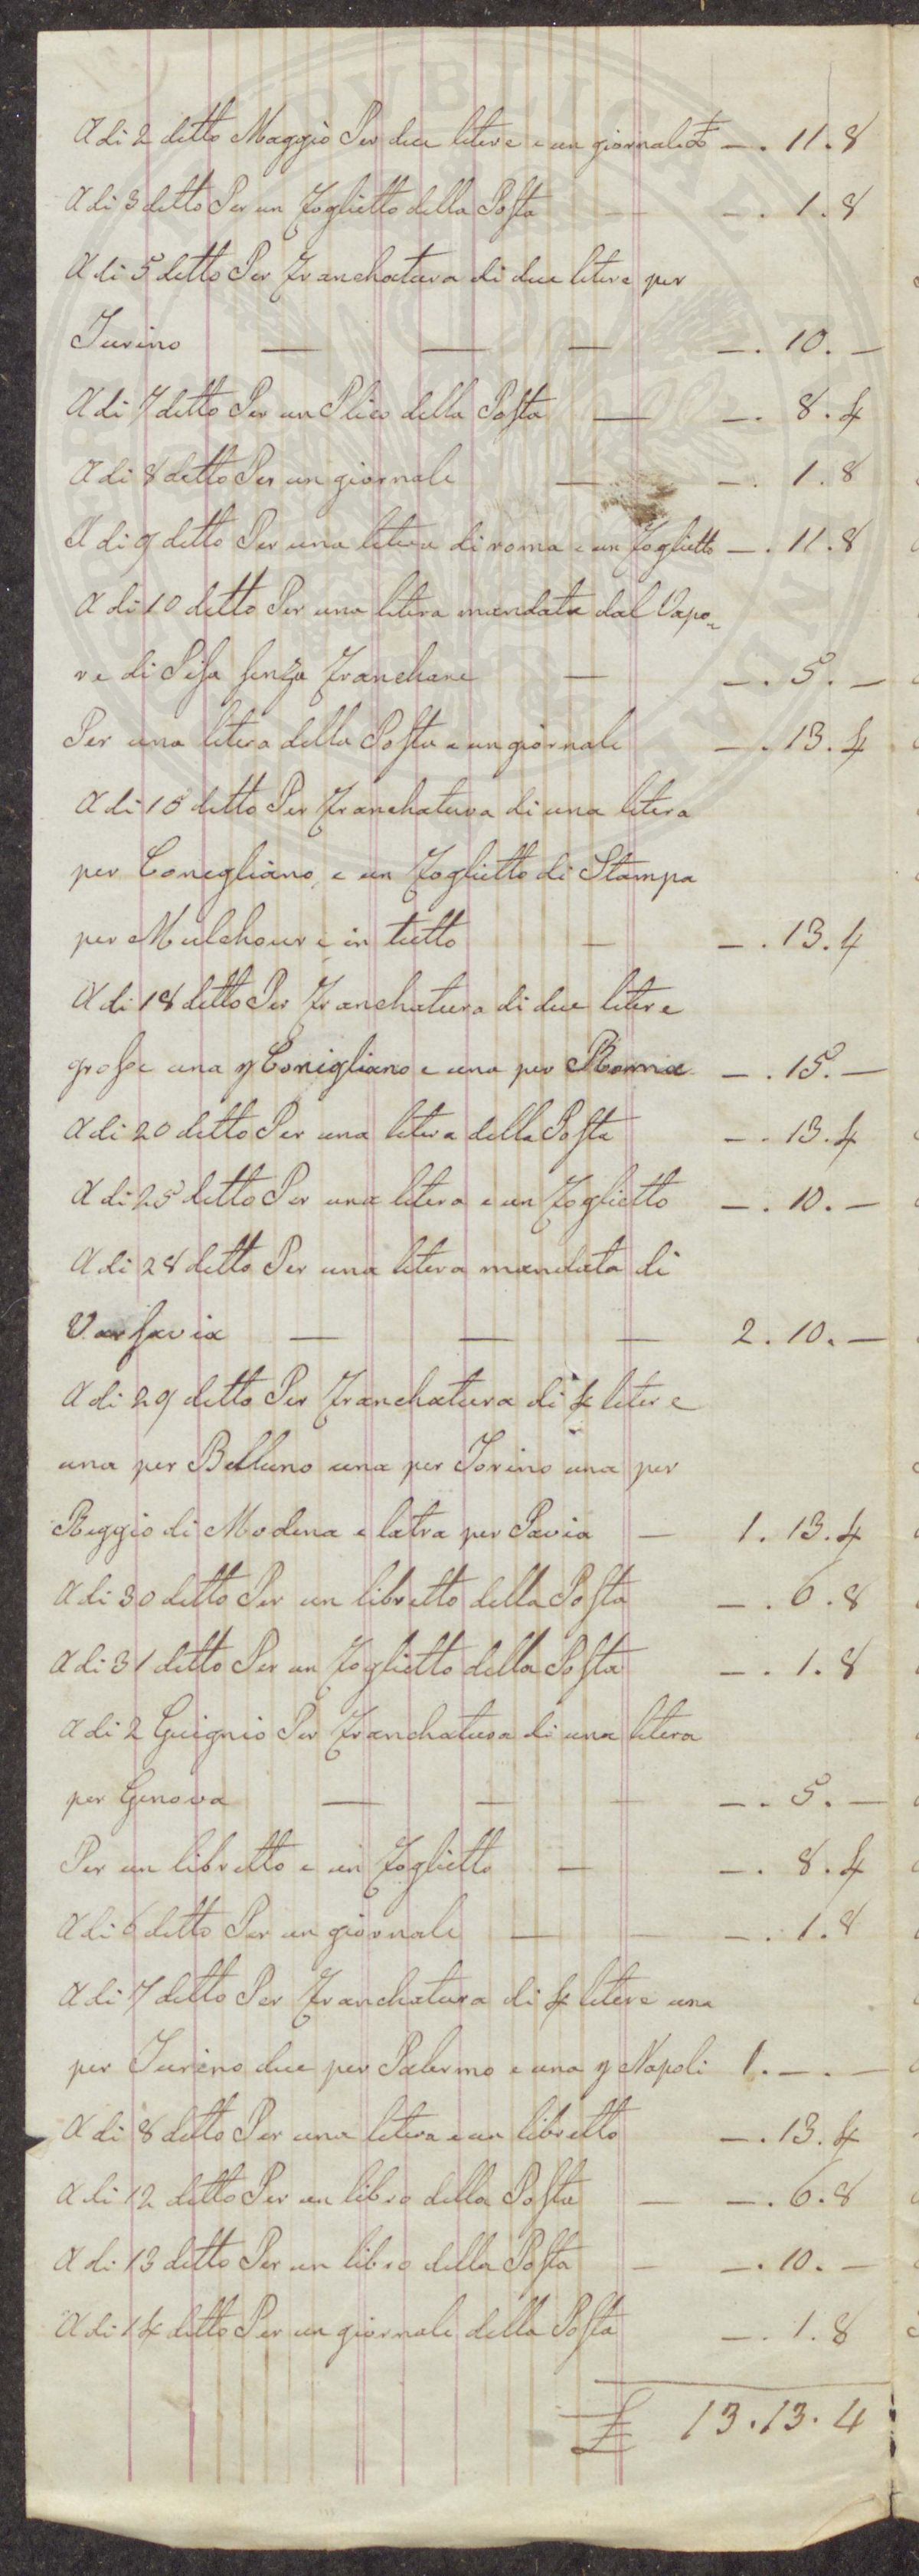 A di 2 detto Maggio Per due litere e un giornale £ —. 11. 8
A di 3 detto Per un Foglietto della Posta — —. 1. 8
A di 5 detto Per Franchatura di due litere per
Turino — — — —. 10. —
A di 7 detto Per un Plico della Posta — —. 8. 4
A di 8 detto Per un giornale — —. 1. 8
A di 9 detto Per una litera di roma e un Foglietto —. 11. 8
A di 10 detto Per una litera mandata dal Vapo=
re di Pisa senza Franchare — —. 5. —
Per una litera della Posta e un giornale —. 13. 4
A di 15 detto Per Franchatura di una litera
per Conegliano, e un Foglietto di Stampa
per Mulchour e in tutto — —. 13. 4
A di 18 detto Per Franchatura di due litere
grosse una p Conigliano e una per Roma —. 15. —
A di 20 detto Per una litera della Posta —. 13. 4
A di 25 detto Per una litera e un Foglietto —. 10. —
A di 28 detto Per una litera mandata di
Varsavia — — — 2. 10. —
A di 29 detto Per Franchatura di 4 litere
una per Belluno una per Torino una per
Reggio di Modena e latra per Pavia — 1. 13. 4
A di 30 detto Per un libretto della Posta —. 6. 8
A di 31 detto Per un Foglietto della Posta —. 1. 8
A di 2 Guignio Per Franchatura di una litera
per Genova — — — —. 5. —
Per un libretto e un Foglietto — —. 8. 4
A di 6 detto Per un giornale — — —. 1. 8
A di 7 detto Per Franchatura di 4 litere una
per Turino due per Palermo e una p Napoli 1. —. —
A di 8 detto Per una litera e un libretto —. 13. 4
A di 12 detto Per un libro della Posta — —. 6. 8
A di 13 detto Per un libro della Posta — —. 10. —
A di 14 detto Per un giornale della Posta —. 1. 8
£ 13. 13. 4